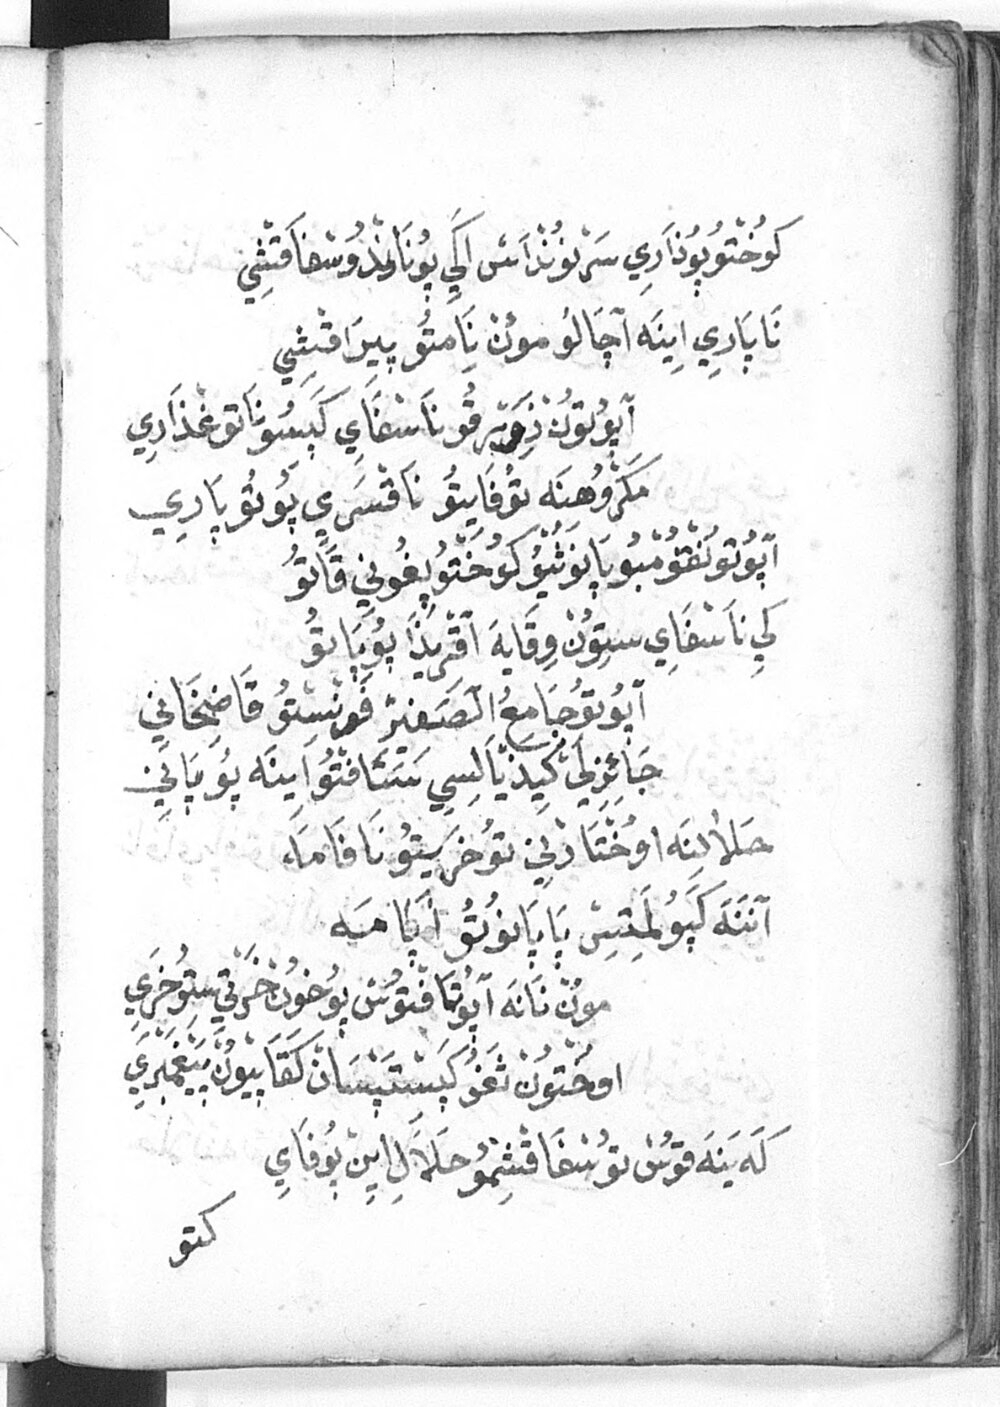 كوُخْتوُ پوُذَارِي سَرْنوُنْذَاسْ اَكِي پوُنَا لْمْذوُ سْفَاقْشِي
نَا پَارِي اِينَه آچَالوُ موُنْ نَا مْتوُ پِيرَاقْشِي
آپوُتوُنْ ذِوِيرْقوُ نَا سْفَايِ كَپَسوُ نَا توُغْذَارِي
مَكْرُوهِنَه توُفَايِتوُ نَا قْسَرِي پوُتوُ پَارِي
آپوُتوُ نُقْقوُمْبوُ پَاپوُثِيوُ كوُخْتوُ پغوُنِي قَاتوُ
كِي نَا سْفَايِ سِتوُنْ وِقَايَه آقْرِيذَا پوُپَاتوُ
آپوُتوُ جَامِعُ الصَغِيرْ فَرْنِسِتوُ قَاضِيخَانِي
جَائِزِلَنْ كِيذِيَالَسِي سْتَافْتوُ اِينَه پوُپَانِي
حلالِنَه اوُخْتَارنِي توُخَرِيتوُ نَا فَامَه
آنِنَه كَپوُلَمِتِسْ پَاپَا نوُتوُ اَپَامَه
موُنْ نَانَه آپوُتَافْتوُسْ پوُخوُنْ خَرْتِي سِتوُخَرِي
اوُخْتوُنْ ثَغوُ كَپِسْتَپْسَانْ كَقَاپِيوُنْ پَيْغَمْبَرِي
كَه يِنَه قوُسْ توُ سْفَاقْشِمُو حَلَالِ اِينْ پوُفَايِ
كتو